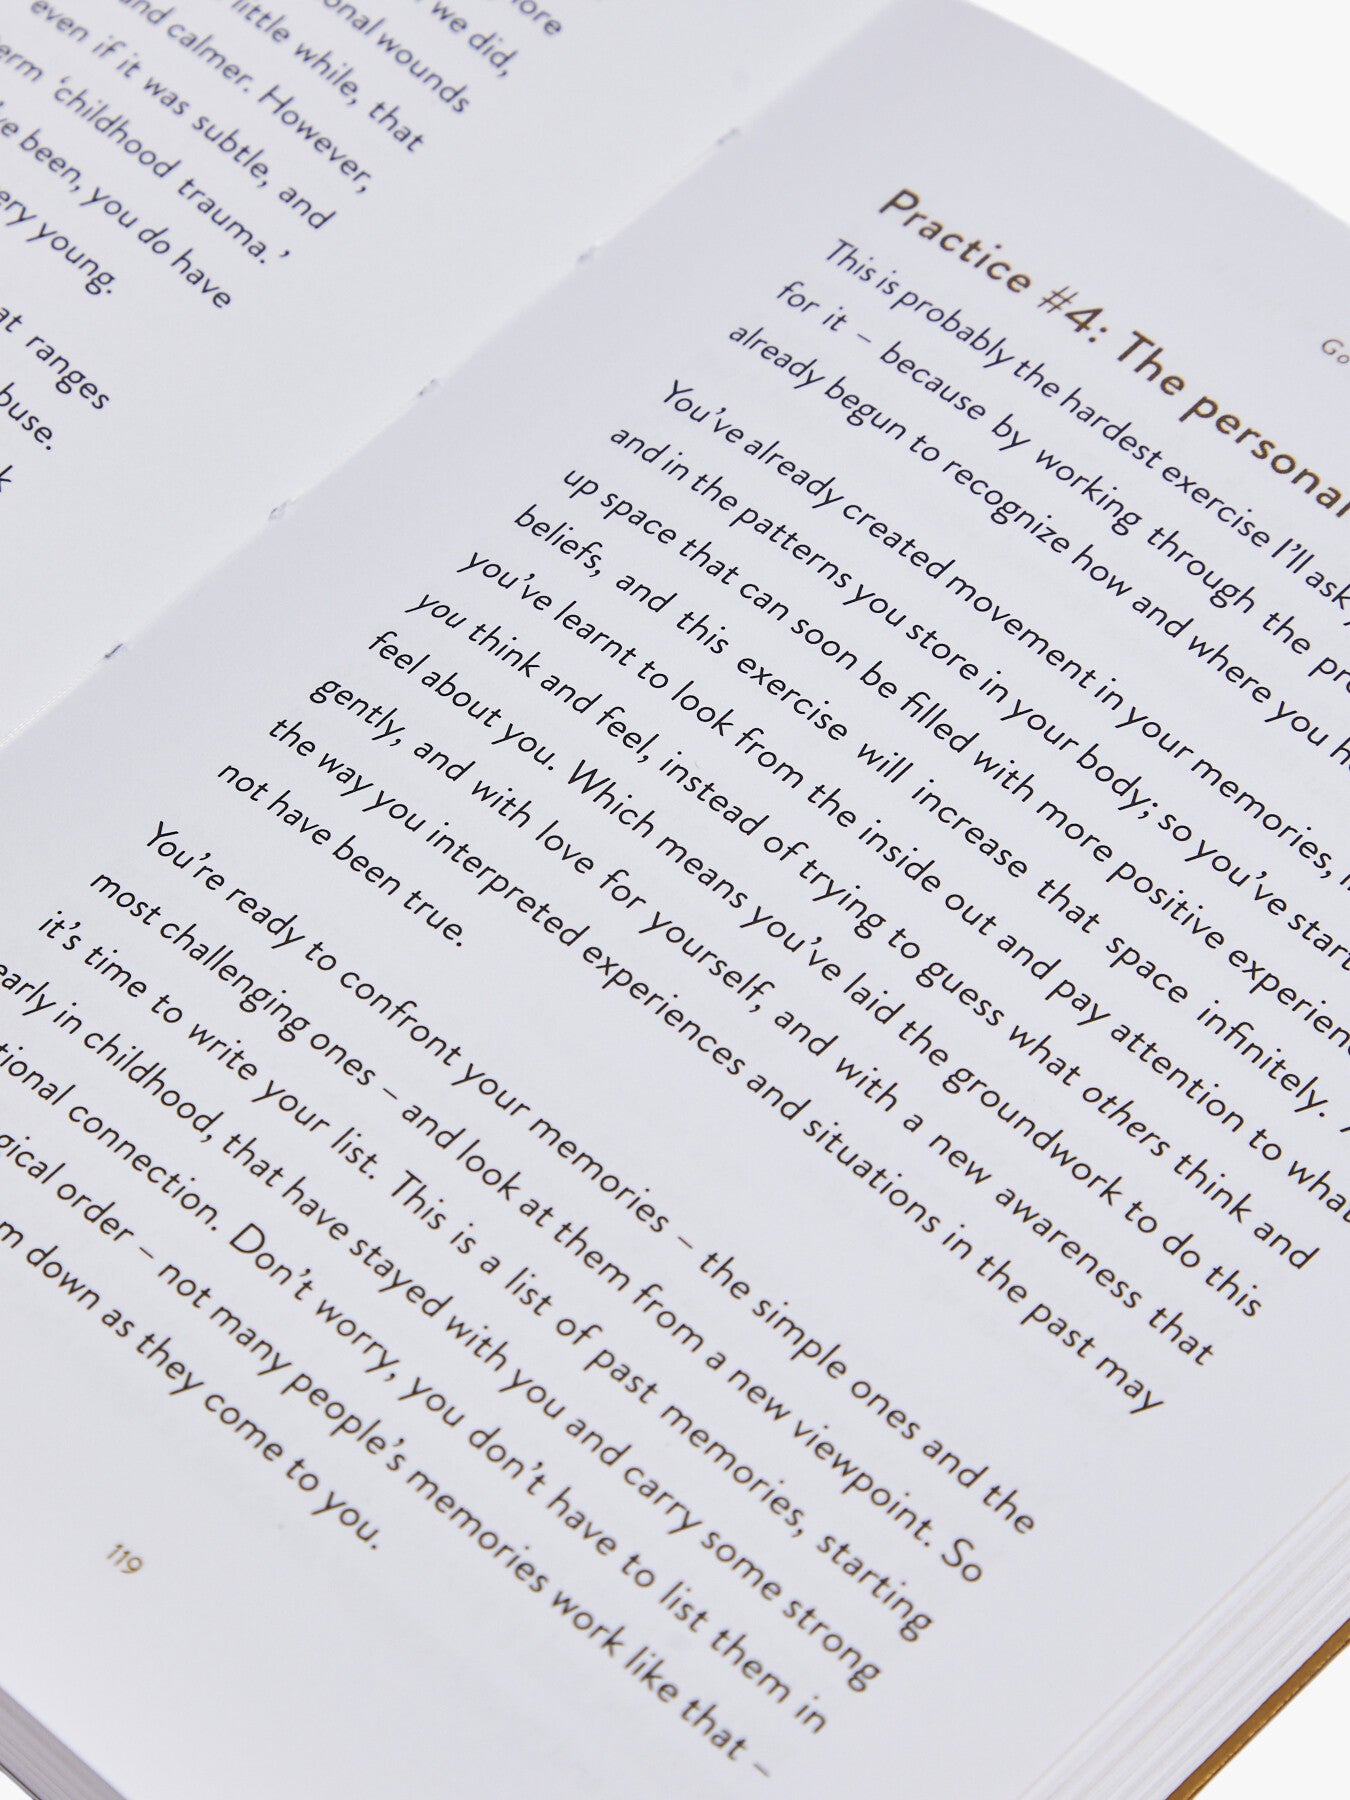 we did,
onal wounds
little while, that
and calmer. However,
even if it was subtle, and
'childhood trauma.'
been, you do have
young.
ranges
Go
Practice #4: The personal
This is probably the hardest exercise I'll ask
for it – because by working through the
already begun to recognize how and where you
You've already created movement in your memories,
and in the patterns you store in your body; so you've
up space that can soon be filled with more positive
beliefs, and this exercise will increase that space infinitely.
you've learnt to look from the inside out and pay attention to what
you think and feel, instead of trying to guess what others think and
feel about you. Which means you've laid the groundwork to do this
gently, and with love for yourself, and with a new awareness that
the way you interpreted experiences and situations in the past may
not have been true.
You're ready to confront your memories – the simple ones and the
most challenging ones – and look at them from a new viewpoint. So
it's time to write your list. This is a list of past memories, starting
early in childhood, that have stayed with you and carry some strong
tional connection. Don't worry, you don't have to list them in
gical order – not many people's memories work like that –
m down as they come to you.
119